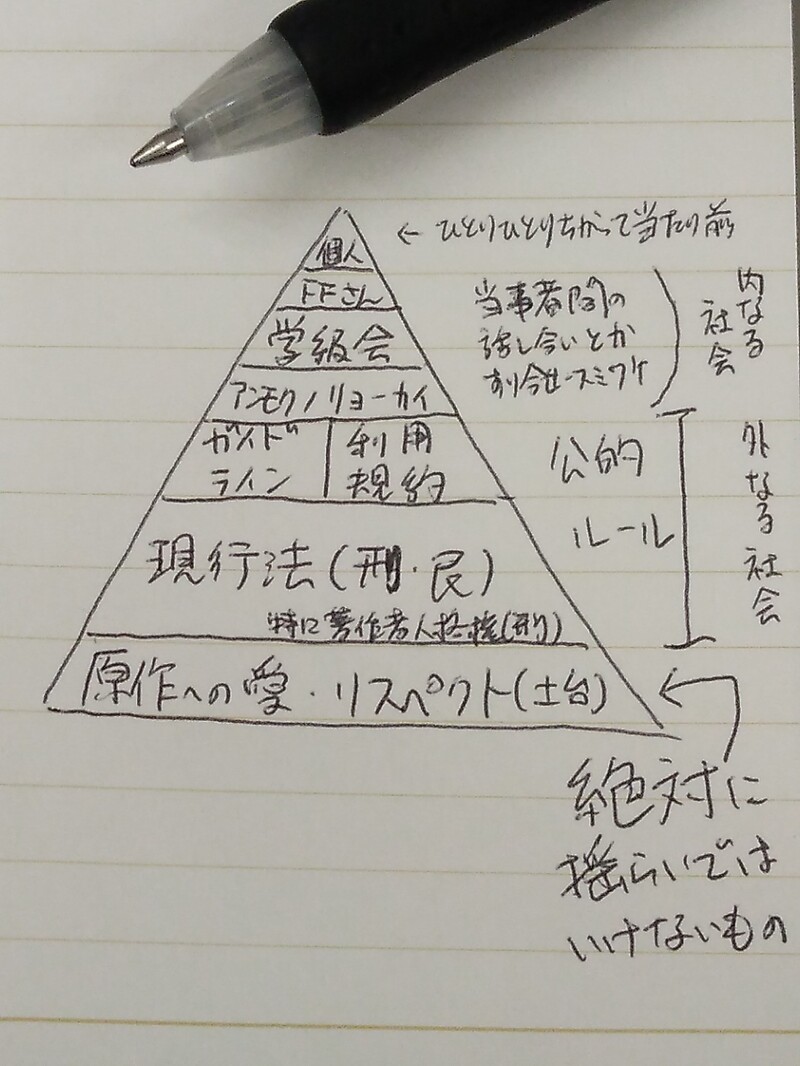 個人
←ひとりひとりちがって当たり前
FFさん
学級会
アンモクノリョーカイ
当事者間の
話し合いとか
すり合せ・スミワケ
内なる
社会
ガイド
ライン
利用
規約
現行法(刑・民)
特に著作者人格権(刑)
公的
ルール
外なる社会
原作への愛・リスペクト(土台)
絶対に
揺らいでは
いけないもの